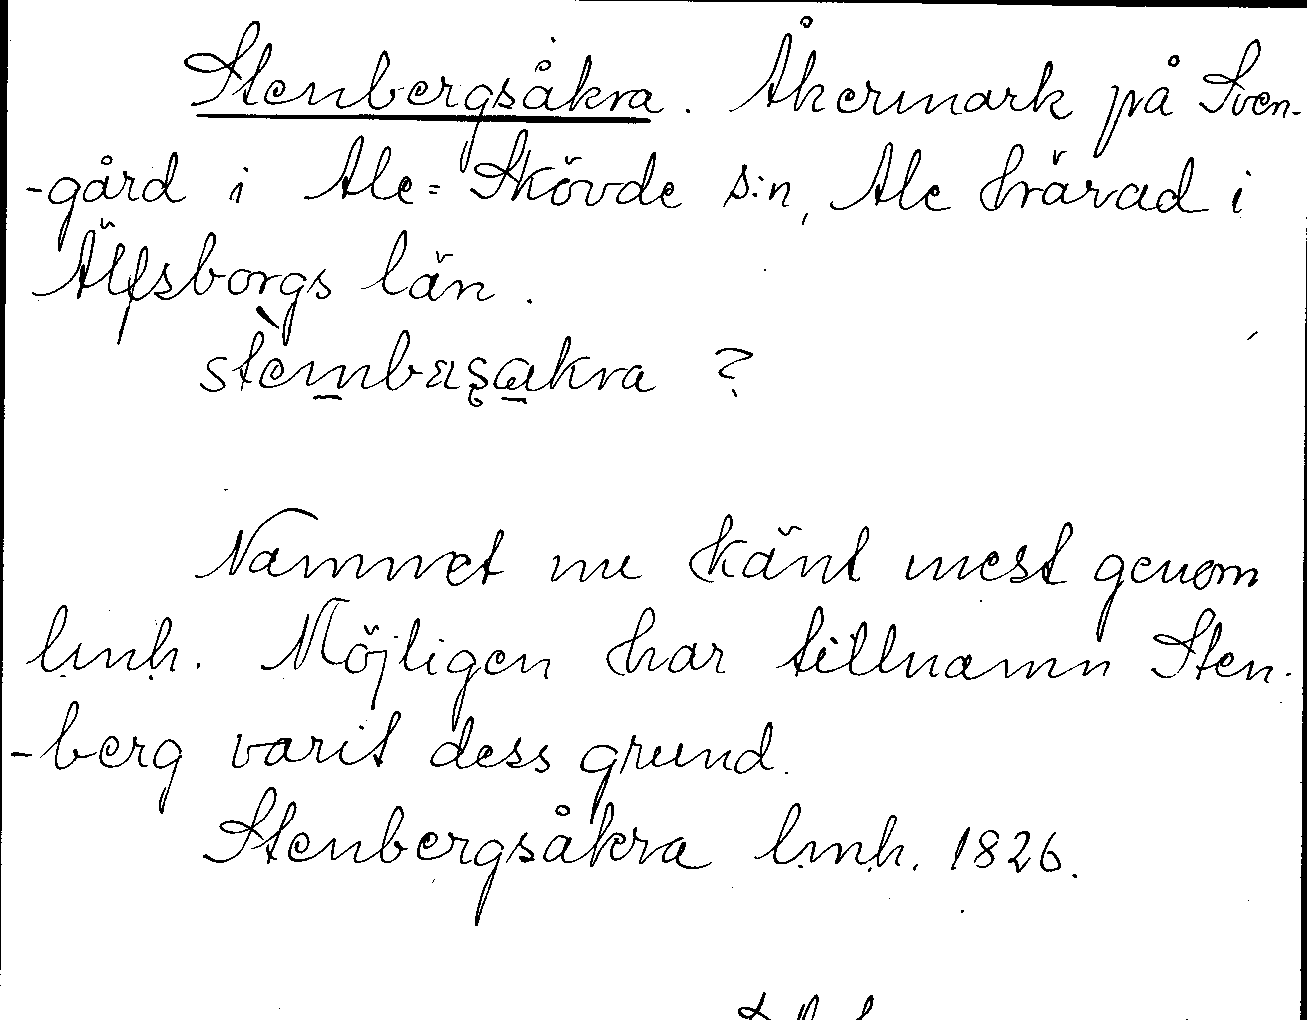 Stenbergsåkra. Åkermark på Sven-
-gård i Ale-Skövde s:n, Ale härad i
Älfsborgs län.
?
Namnet nu känt mest genom
lmh. Möjligen har tillnamn Sten-
-berg varit dess grund.
Stenbergsåkra lmh. 1826.